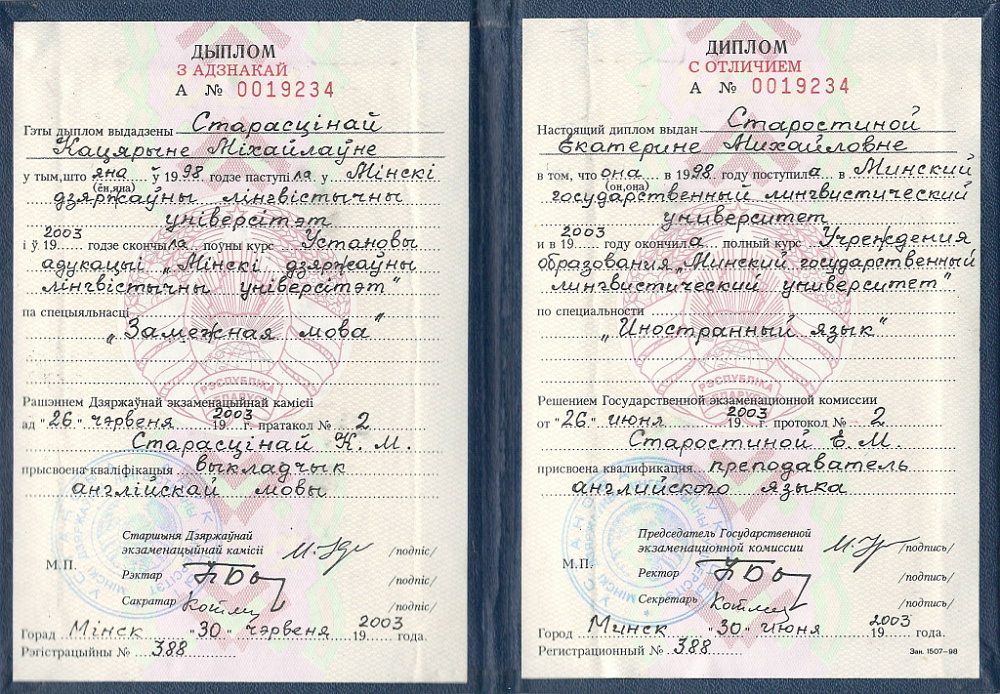 ДЫПЛОМ
З АДЗНАКАЙ
А № 0019234
Гэты дыплом выдадзены Старасцінай
Кацярыне Міхайлаўне
у тым, што яна ў 1998 годзе паступіла у Мінскі
(ён, яна)
дзяржаўны лінгвістычны
універсітэт
2003
і ў 19...... годзе скончыла поўны курс Установы
адукацыі „Мінскі дзяржаўны
лінгвістычны універсітэт"
па спецыяльнасці
„Замежная мова"
РЭСПУБЛІКА
БЕЛАРУСЬ
Рашэннем Дзяржаўнай экзаменацыйнай камісіі
ад "26." чэрвеня 2003 19 г. пратакол № 2
Старасцінай К. М.
прысвоена кваліфікацыя выкладчык
англійскай мовы
Старшыня Дзяржаўнай
экзаменацыйнай камісіі /подпіс/
М.П.
Рэктар /подпіс/
Сакратар /подпіс/
Горад Мінск "30" чэрвеня 2003 19 года.
Рэгістрацыйны № 388
ДИПЛОМ
С ОТЛИЧИЕМ
А № 0019234
Настоящий диплом выдан Старостиной
Екатерине Михайловне
в том, что она в 1998 году поступила в Минский
(он, она)
государственный лингвистический
университет
2003
и в 19...... году окончила полный курс Учреждения
образования „Минский государственный
лингвистический университет"
по специальности
„Иностранный язык"
РЭСПУБЛІКА
БЕЛАРУСЬ
Решением Государственной экзаменационной комиссии
от "26." июня 2003 19 г. протокол № 2
Старостиной Е. М.
присвоена квалификация преподаватель
английского языка
Председатель Государственной
экзаменационной комиссии /подпись/
М.П.
Ректор /подпись/
Секретарь /подпись/
Город Минск "30" июня 2003 19 года.
Регистрационный № 388
Зак. 1507-98